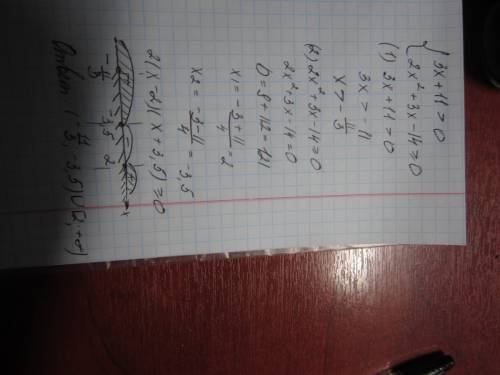 { 3x + 11 > 0
2x² + 3x - 14 ≥ 0
(1) 3x + 11 > 0
3x > - 11
x > - 11/3
(2) 2x² + 3x - 14 ≥ 0
2x² + 3x - 14 = 0
D = 9 + 112 = 121
x1 = -3 + 11 / 4 = 2
x2 = -3 - 11 / 4 = -3,5
2(x - 2)(x + 3,5) ≥ 0
- 11/3 -3,5 2 x
Ответ: (- 11/3, -3,5) ∪ [2, +∞)